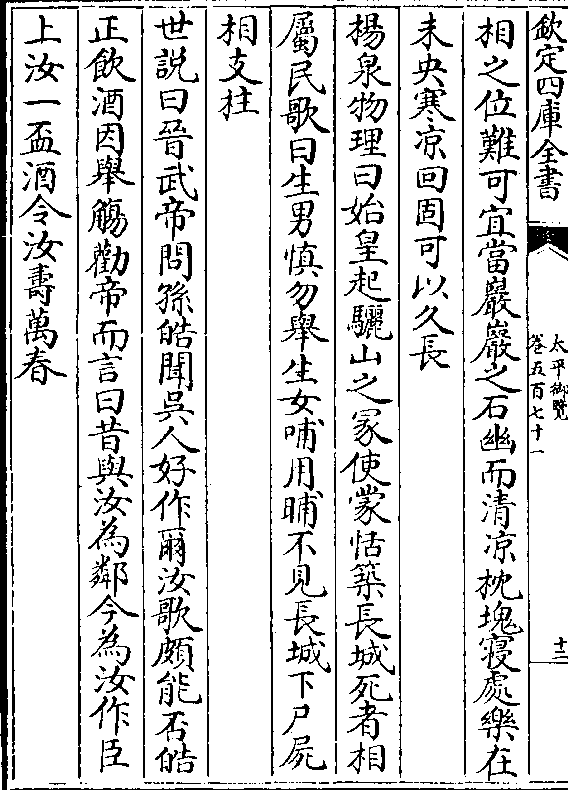 欽定四庫全書
太平御覽
卷五百七十一
十三
相之位難可宜當巖巖之石幽而清凉枕塊寢處樂在
未央寒凉回固可以久長
楊泉物理曰始皇起驪山之冢使蒙恬築長城死者相
屬民歌曰生男慎勿舉生女哺用餔不見長城下尸屍
相支拄
世説曰晉武帝問孫皓聞吳人好作爾汝歌頗能否皓
正飲酒因舉觴勸帝而言曰昔與汝為鄰今為汝作臣
上汝一盃酒令汝壽萬春